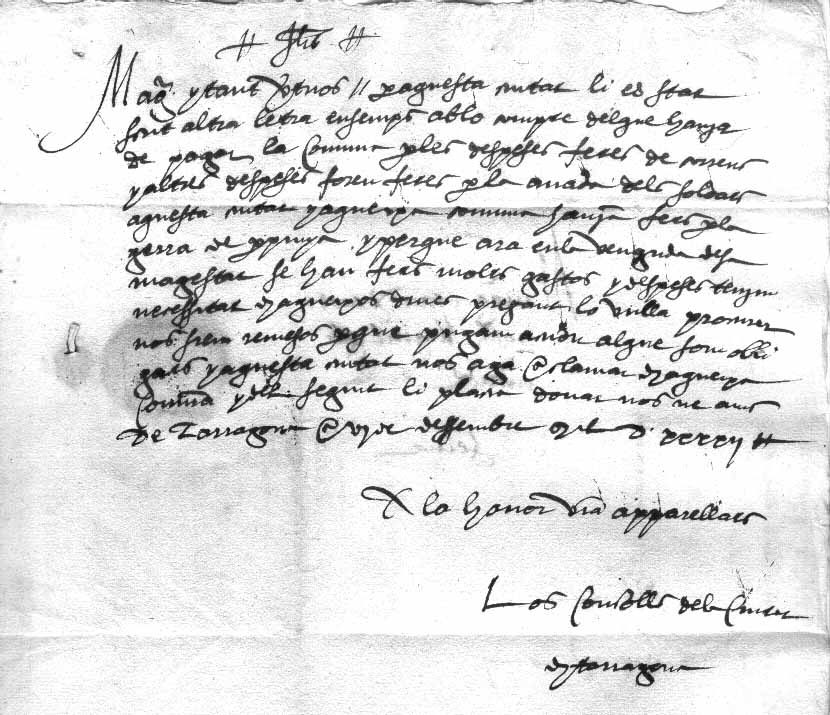 # Jhs #
Magch y tant vtuos // per aquesta ciutat li es stat
scrit altra letra ensemps ablo compte del que hauya
de pagar la Comuna ples despeses fetes de correus
y altres despeses foren fetes perla anada dels soldats
aquesta ciutat y aqueixa comuna hauya fets pla
gerra de perpinya y perque ara enla venguda de sa
magestat se han fets molts gastos y despeses tenim
necessitat de aqueixos dines pregant lo vulla procurar
nos sien remesos perque pugam acudir al que som obli
gats y aquesta ciutat nos aga a clamar de aqueixa
Comuna y dell seguit li placia donar nos ne avis
De Tarragona a vj de desembre
A la honor vra apparellats
Los Consolls dela Ciutat
de tarragona